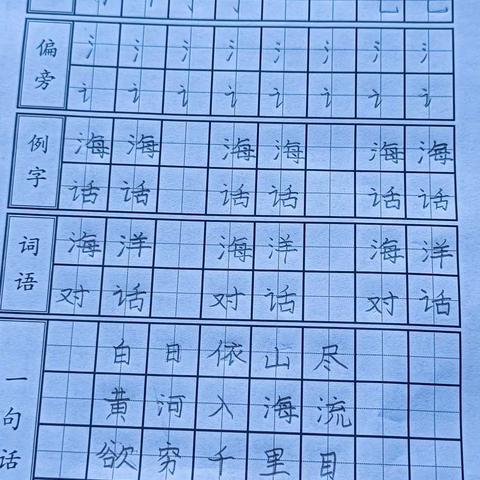 偏旁
氵氵氵氵氵氵氵氵
讠讠讠讠讠讠讠讠
例字
海海 海海 海海
话话 话话 话话
词语
海洋 海洋 海洋
对话 对话 对话
一句话
白日依山尽
黄河入海流
欲穷千里目